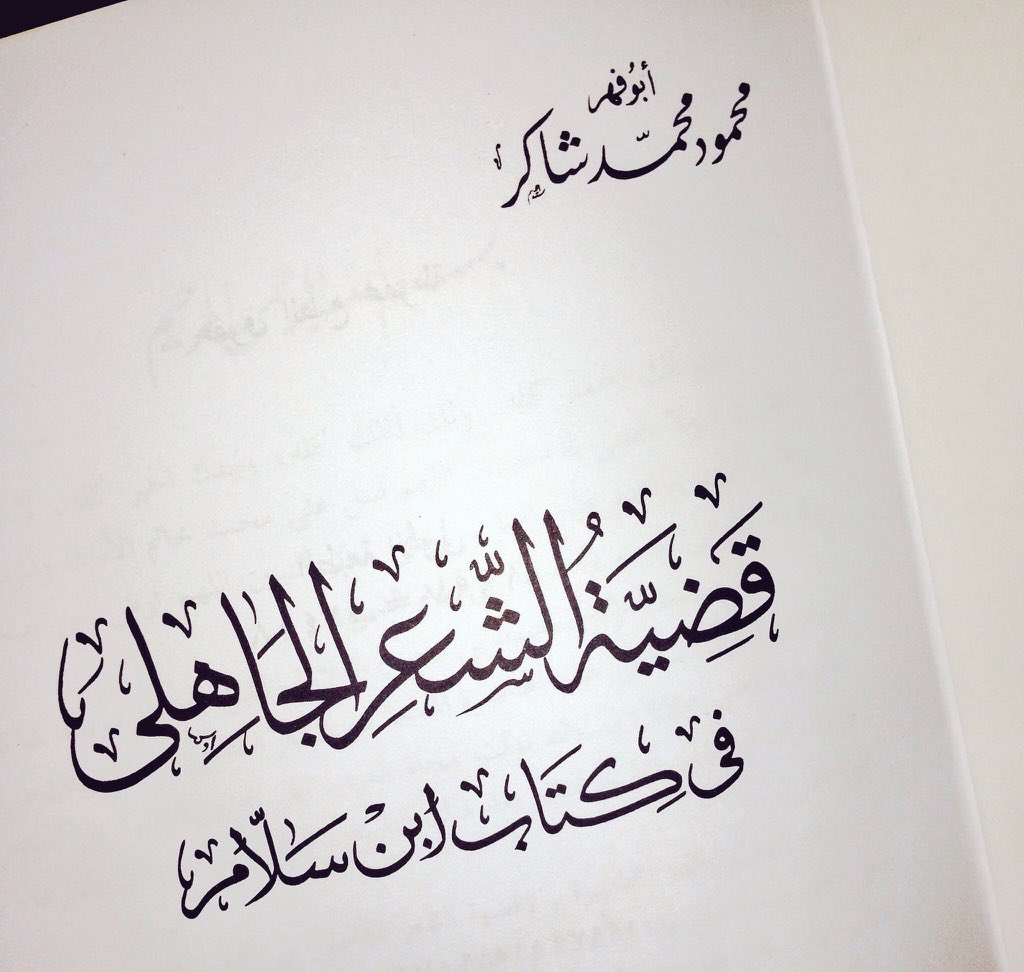 أبُو فهر
محمود محمّد شاكر
قَضِيَّةُ الشِّعرِ الجَاهِلى
فى كِتَاب ابنْ سَلاَّم